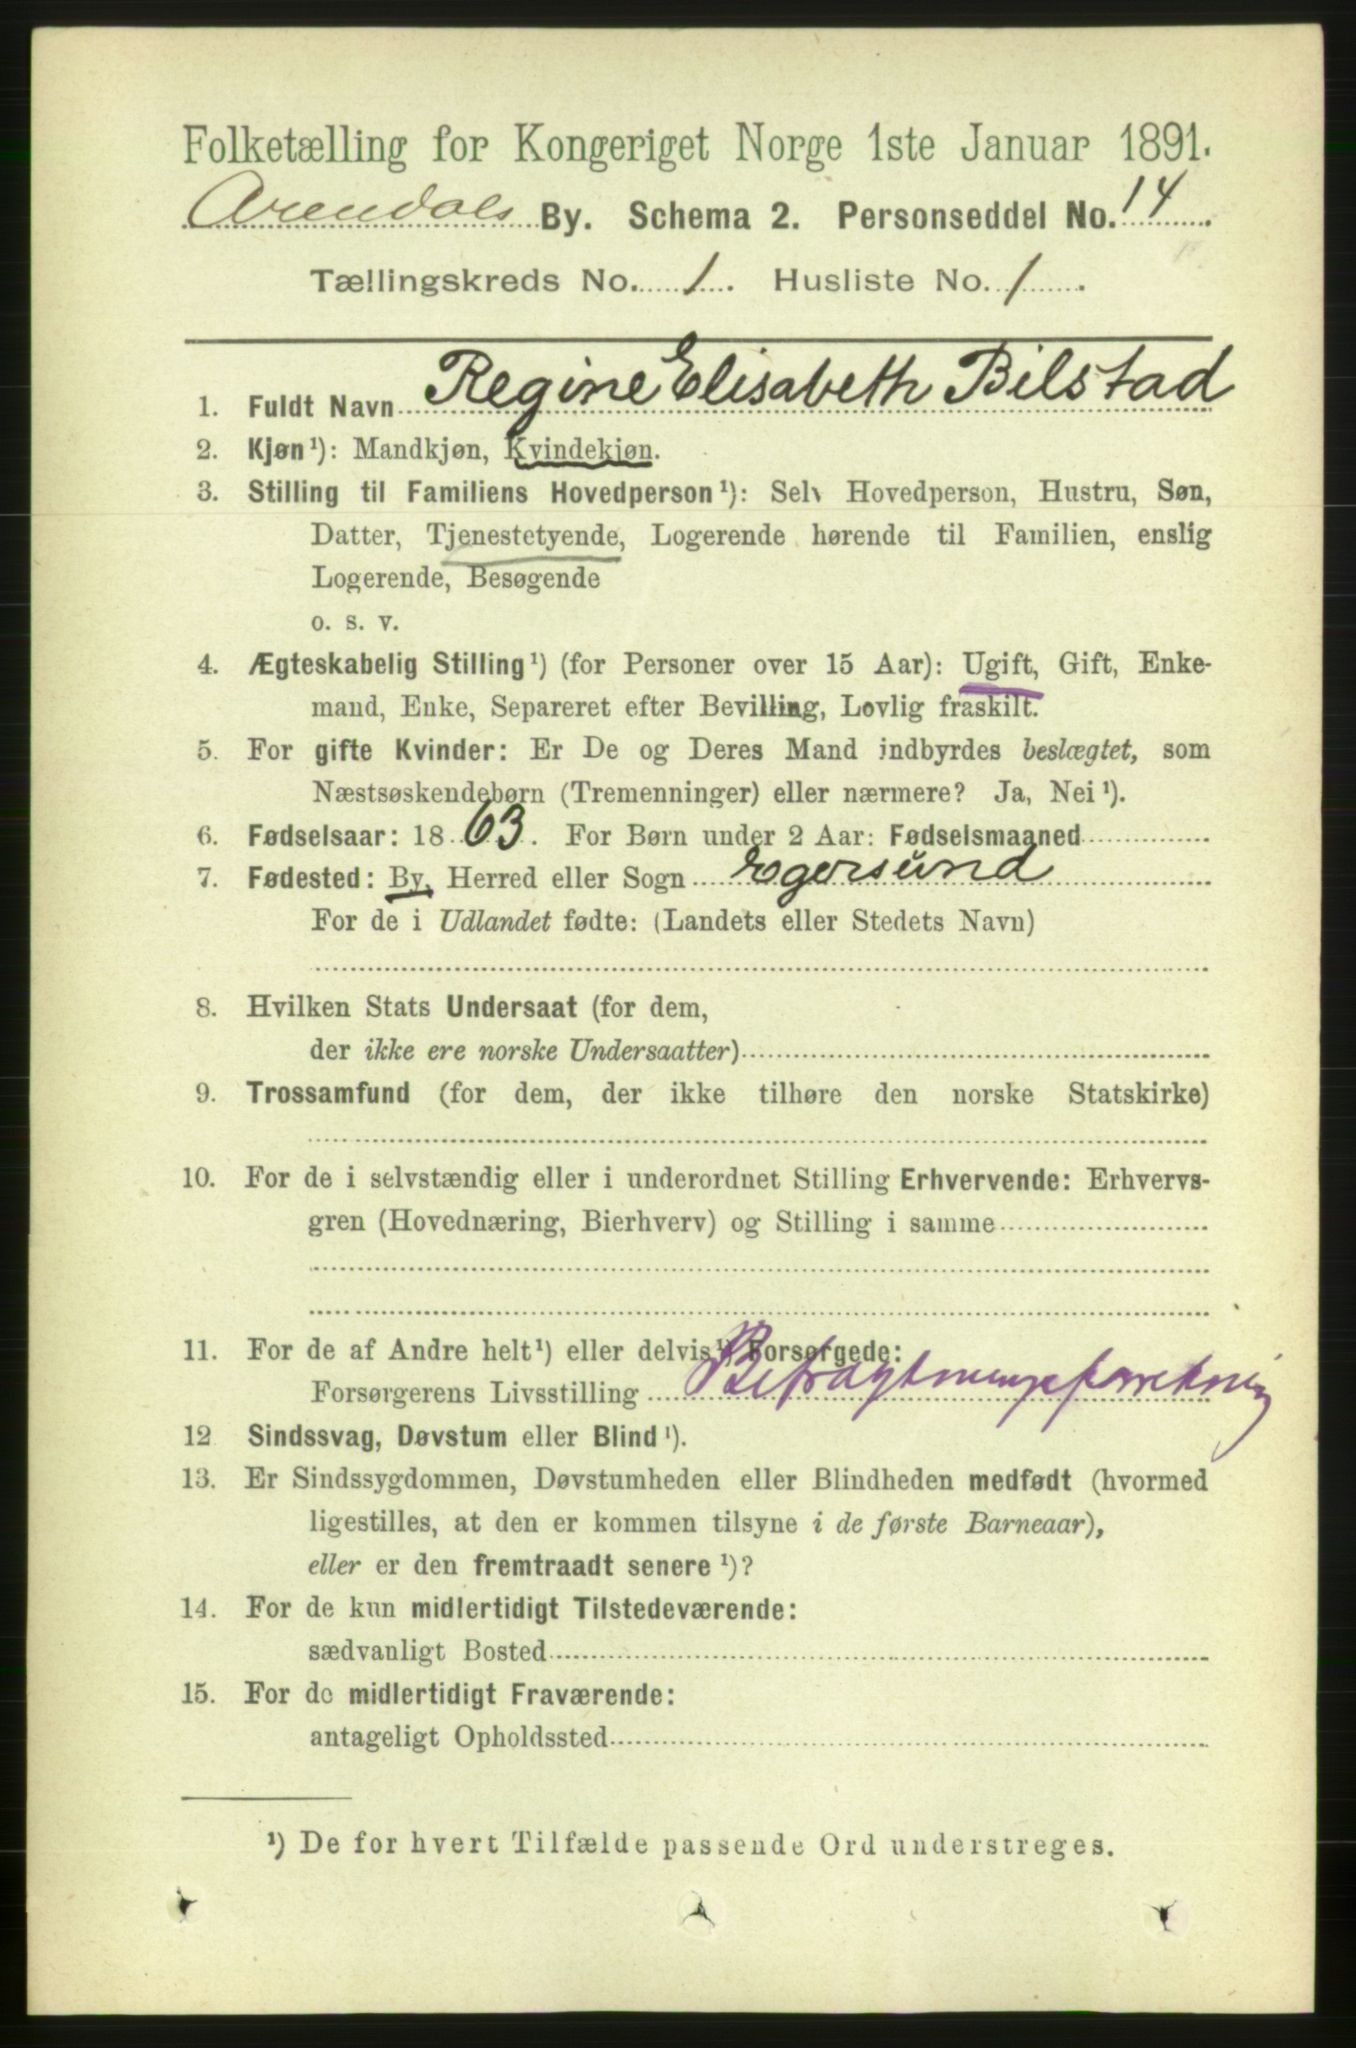 Folketælling for Kongeriget Norge 1ste Januar 1891.
Arendals By. Schema 2. Personseddel No. 14
Tællingskreds No. 1. Husliste No. 1.
1. Fuldt Navn Regine Elisabeth Bilstad
2. Kjøn¹): Mandkjøn, Kvindekjøn.
3. Stilling til Familiens Hovedperson¹): Selv Hovedperson, Hustru, Søn,
Datter, Tjenestetyende, Logerende hørende til Familien, enslig
Logerende, Besøgende
o. s. v.
4. Ægteskabelig Stilling¹) (for Personer over 15 Aar): Ugift, Gift, Enke-
mand, Enke, Separeret efter Bevilling, Lovlig fraskilt.
5. For gifte Kvinder: Er De og Deres Mand indbyrdes beslægtet, som
Næstsøskendebørn (Tremenninger) eller nærmere? Ja, Nei¹).
6. Fødselsaar: 1863. For Børn under 2 Aar: Fødselsmaaned
7. Fødested: By, Herred eller Sogn Egersund
For de i Udlandet fødte: (Landets eller Stedets Navn)
8. Hvilken Stats Undersaat (for dem,
der ikke ere norske Undersaatter)
9. Trossamfund (for dem, der ikke tilhøre den norske Statskirke)
10. For de i selvstændig eller i underordnet Stilling Erhvervende: Erhvervs-
gren (Hovednæring, Bierhverv) og Stilling i samme
11. For de af Andre helt¹) eller delvis¹) Forsørgede:
Forsørgerens Livsstilling
12 Sindssvag, Døvstum eller Blind¹).
13. Er Sindssygdommen, Døvstumheden eller Blindheden medfødt (hvormed
ligestilles, at den er kommen tilsyne i de første Barneaar),
eller er den fremtraadt senere¹)?
14. For de kun midlertidigt Tilstedeværende:
sædvanligt Bosted
15. For de midlertidigt Fraværende:
antageligt Opholdssted
¹) De for hvert Tilfælde passende Ord understreges.